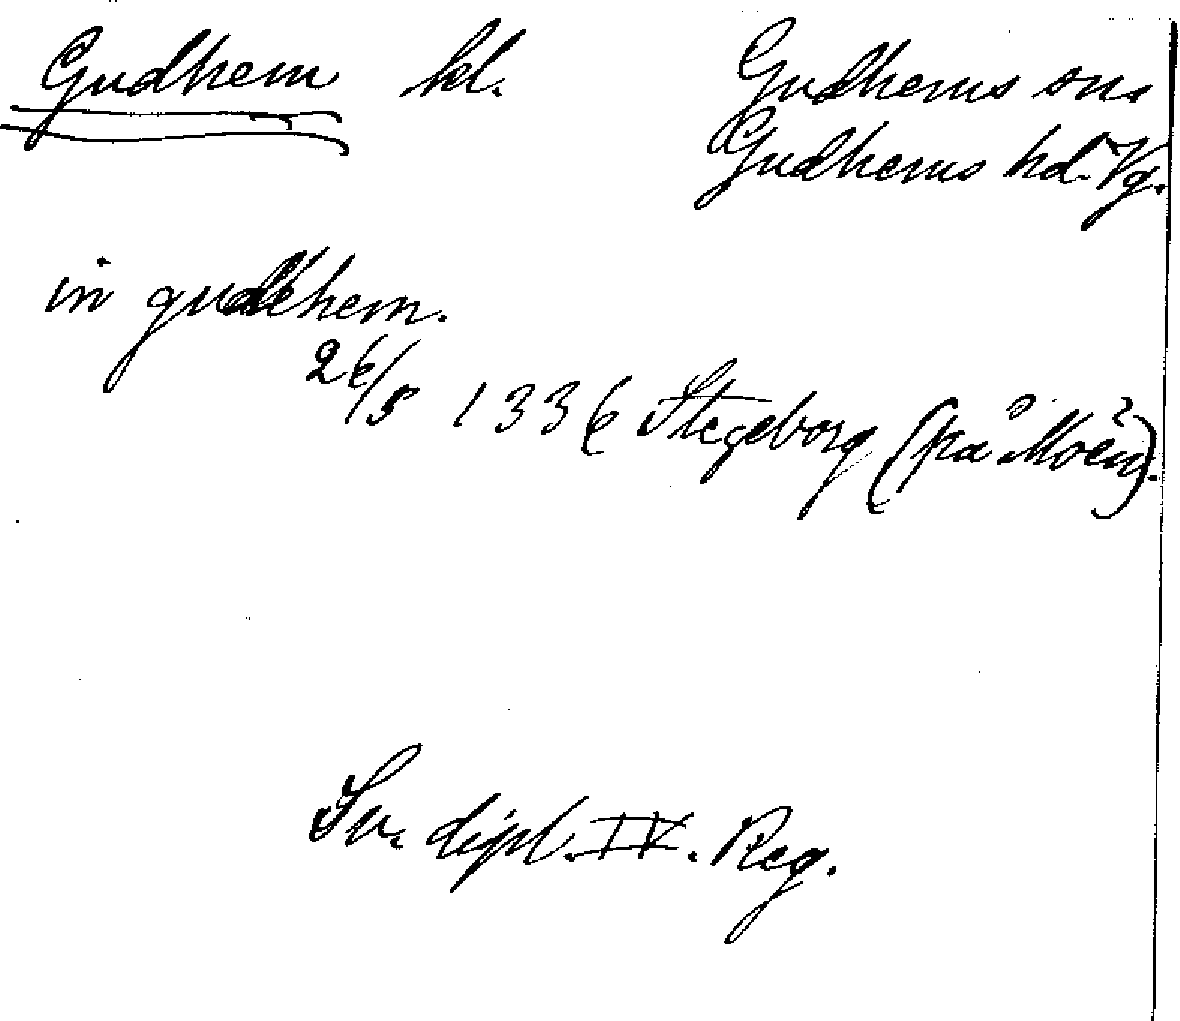 Gudhem kl.
Gudhems sn.
Gudhems hd. Vg.
in gudhem.
26/5 1336 Stegeborg (på Möen).
Sv. dipl. IV. Reg.